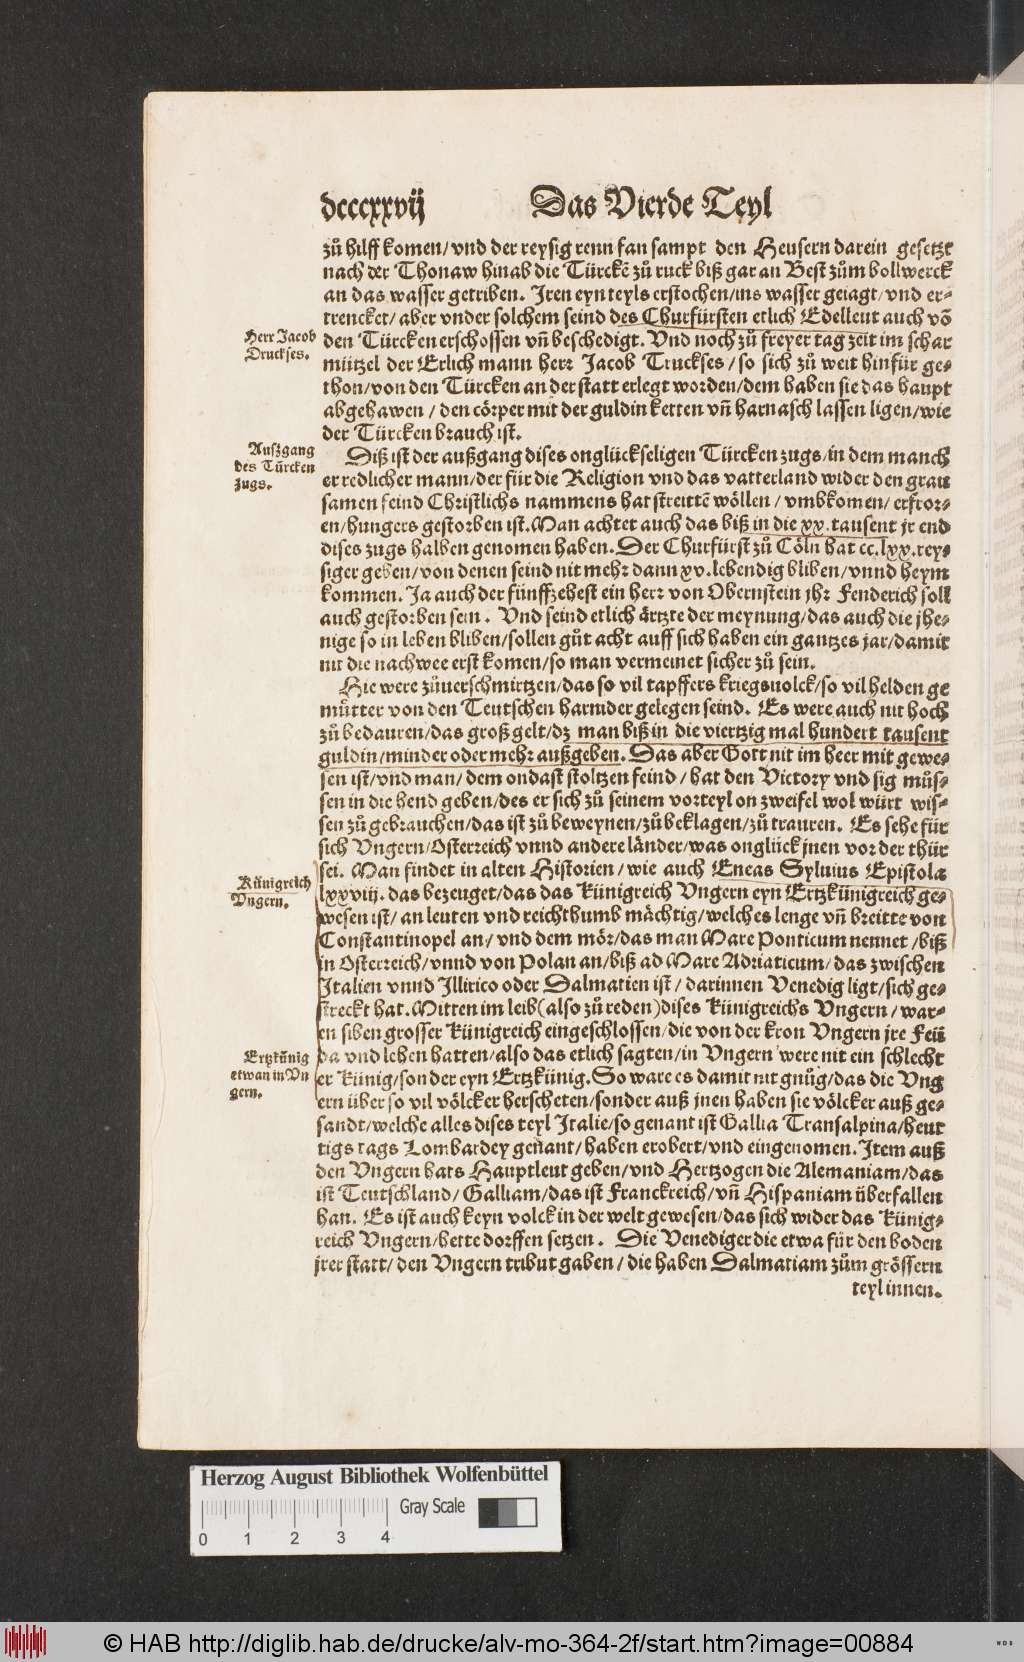 dcccxxvij Das Vierde Teyl
zů hilff komen/ vnd der reysig renn fan sampt den Heusern darein gesetzt
nach der Thonaw hinab die Türckē zů ruck biß gar an Best zům bollwerck
an das wasser getriben. Jren eyn teyls erstochen/ins wasser geiagt/vnd er-
trencket/ aber vnder solchem seind des Churfürsten etlich Edelleut auch vō
den Türcken erschossen vñ beschedigt. Vnd noch zů freyer tag zeit im schar
mützel der Erlich mann herr Jacob Truckses/so sich zů weit hinfür ge-
thon/von den Türcken an der statt erlegt worden/dem haben sie das haupt
abgehawen/ den cörper mit der guldin ketten vñ harnasch lassen ligen/wie
der Türcken brauch ist.
Herr Jacob
Druckses.
Diß ist der außgang dises onglückseligen Türcken zugs/in dem manch
er redlicher mann/der für die Religion vnd das vatterland wider den grau
samen feind Christlichs nammens hat streittē wöllen/ vmbkomen/ erfror-
en/hungers gestorben ist. Man achtet auch das biß in die xx. tausent jr end
dises zugs halben genomen haben. Der Churfürst zů Cöln hat cc.lxx.rey-
siger geben/von denen seind nit mehr dann xv.lebendig bliben/vnnd heym
kommen. Ja auch der fünffzehest ein herr von Obernstein jhr Fenderich soll
auch gestorben sein. Vnd seind etlich ärtzte der meynung/das auch die jhe-
nige so in leben bliben/sollen gůt acht auff sich haben ein gantzes jar/damit
nit die nachwee erst komen/so man vermeinet sicher zů sein.
Außgang
des Türcken
zugs.
Hie were zůuerschmirtzen/das so vil tapffers kriegsuolck/so vil helden ge
mütter von den Teutschen harnider gelegen seind. Es were auch nit hoch
zů bedauren/das groß gelt/dz man biß in die viertzig mal hundert tausent
guldin/minder oder mehr außgeben. Das aber Gott nit im heer mit gewe-
sen ist/vnd man/ dem ondast stoltzen feind/ hat den Victory vnd sig můs-
sen in die hend geben/des er sich zů seinem vorteyl on zweifel wol würt wis-
sen zů gebrauchen/das ist zů beweynen/zů beklagen/zů trauren. Es sehe für
sich Vngern/Osterreich vnnd andere länder/was onglück jnen vor der thür
sei. Man findet in alten Historien/ wie auch Eneas Syluius Epistola
lxxviij. das bezeuget/das das Künigreich Vngern eyn Ertzkünigreich ge-
wesen ist/ an leuten vnd reichthumb mächtig/welches lenge vñ breitte von
Constantinopel an/ vnd dem mör/das man Mare Ponticum nennet/biß
in Osterreich/vnnd von Polan an/biß ad Mare Adriaticum/das zwischen
Italien vnnd Illirico oder Dalmatien ist/ darinnen Venedig ligt/sich ge-
streckt hat. Mitten im leib(also zů reden)dises Künigreichs Vngern/ war-
en siben grosser Künigreich eingeschlossen/die von der kron Vngern jre Feū
da vnd lehen hatten/also das etlich sagten/in Vngern were nit ein schlecht
er Künig/sonder eyn Ertzkünig. So ware es damit nit gnůg/das die Vng
ern über so vil völcker herscheten/sonder auß jnen haben sie völcker auß ge-
sandt/welche alles dises teyl Italie/so genant ist Gallia Transalpina/heut
tigs tags Lombardey geñant/haben erobert/vnd eingenomen. Item auß
den Vngern hats Hauptleut geben/vnd Hertzogen die Alemaniam/das
ist Teutschland/ Galliam/das ist Franckreich/vñ Hispaniam überfallen
han. Es ist auch keyn volck in der welt gewesen/das sich wider das Künig-
reich Vngern/hette dorffen setzen. Die Venediger die etwa für den boden
jrer statt/ den Vngern tribut gaben/ die haben Dalmatiam zům grössern
teyl innen.
Künigreich
Vngern.
Ertzkünig
etwan in Vn
gern.
Herzog August Bibliothek Wolfenbüttel
0 1 2 3 4
Gray Scale
© HAB http://diglib.hab.de/drucke/alv-mo-364-2f/start.htm?image=00884